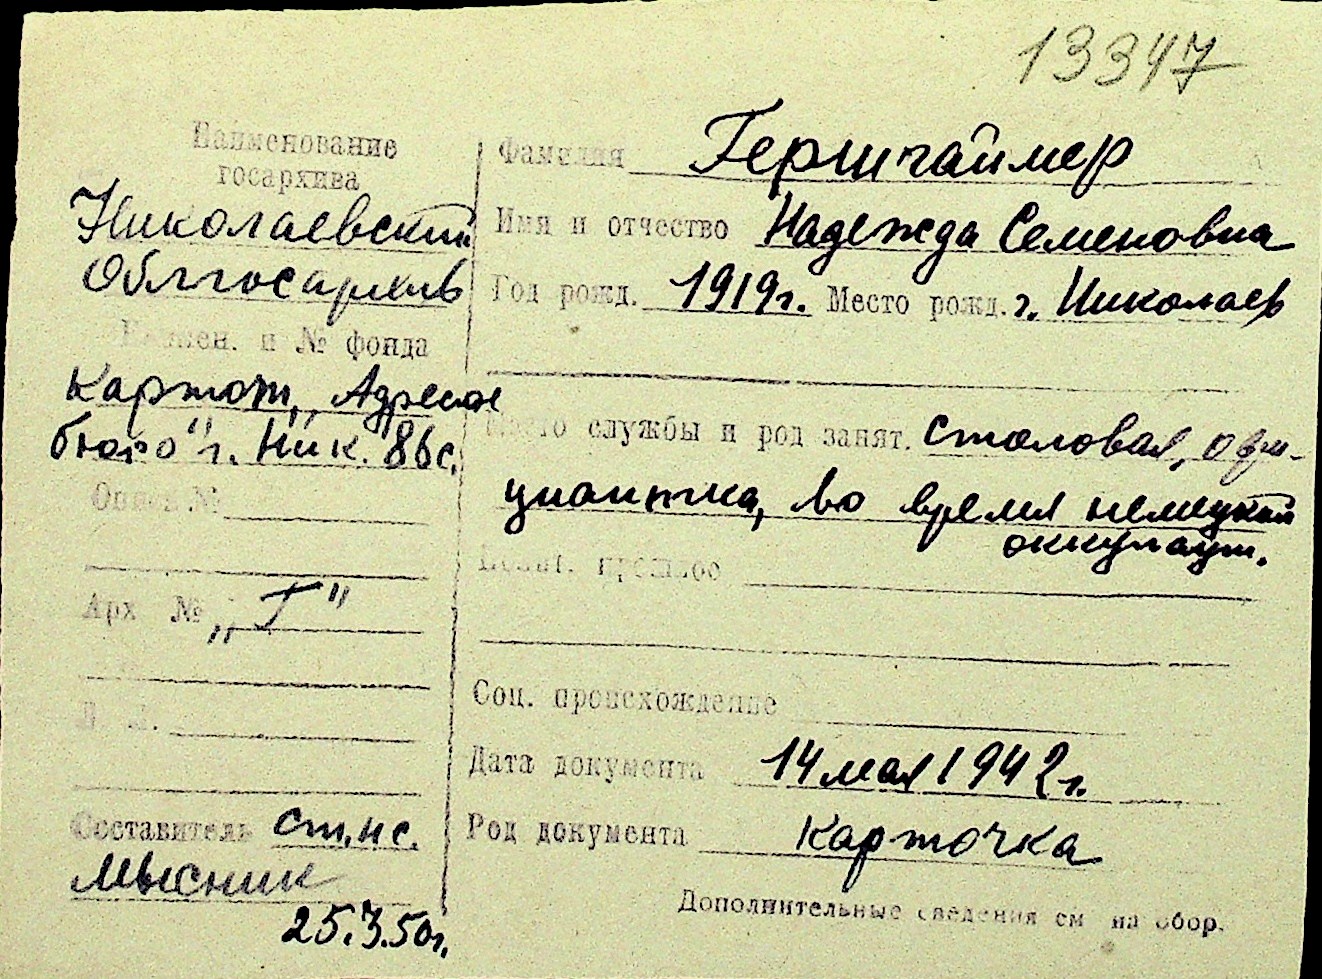 13347
Наименование
госархива
Николаевский
Облгосархив
Наимен. и № фонда
Картот. „Адресное
бюро" г. Ник. 86с.
Опись №
Арх №
„Г"
Составитель ст. н с.
Мысник
25.3.50г.
Фамилия Герштаймер
Имя и отчество Надежда Семеновна
Год рожд. 1919г. Место рожд. г. Николаев
Место службы и род занят. столовая, офи-
циантка, во время немецкой
оккупац.
Полит. прошлое
Соц. происхождение
Дата документа 14 мая 1942г.
Род документа карточка
Дополнительные сведения см на обор.